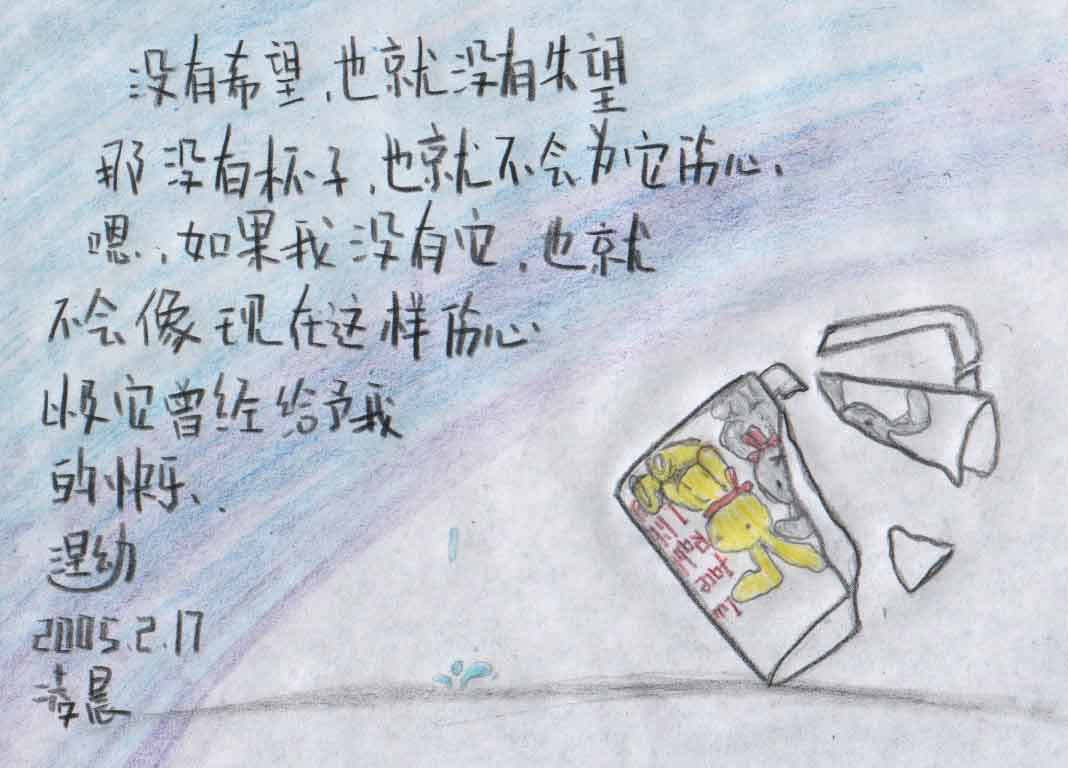 没有希望,也就没有失望
那没有杯子,也就不会为它伤心、
嗯..如果我没有它,也就
不会像现在这样伤心..
以及它曾经给予我
的快乐、
幼
2005.2.17
凌晨
I
Rabbi